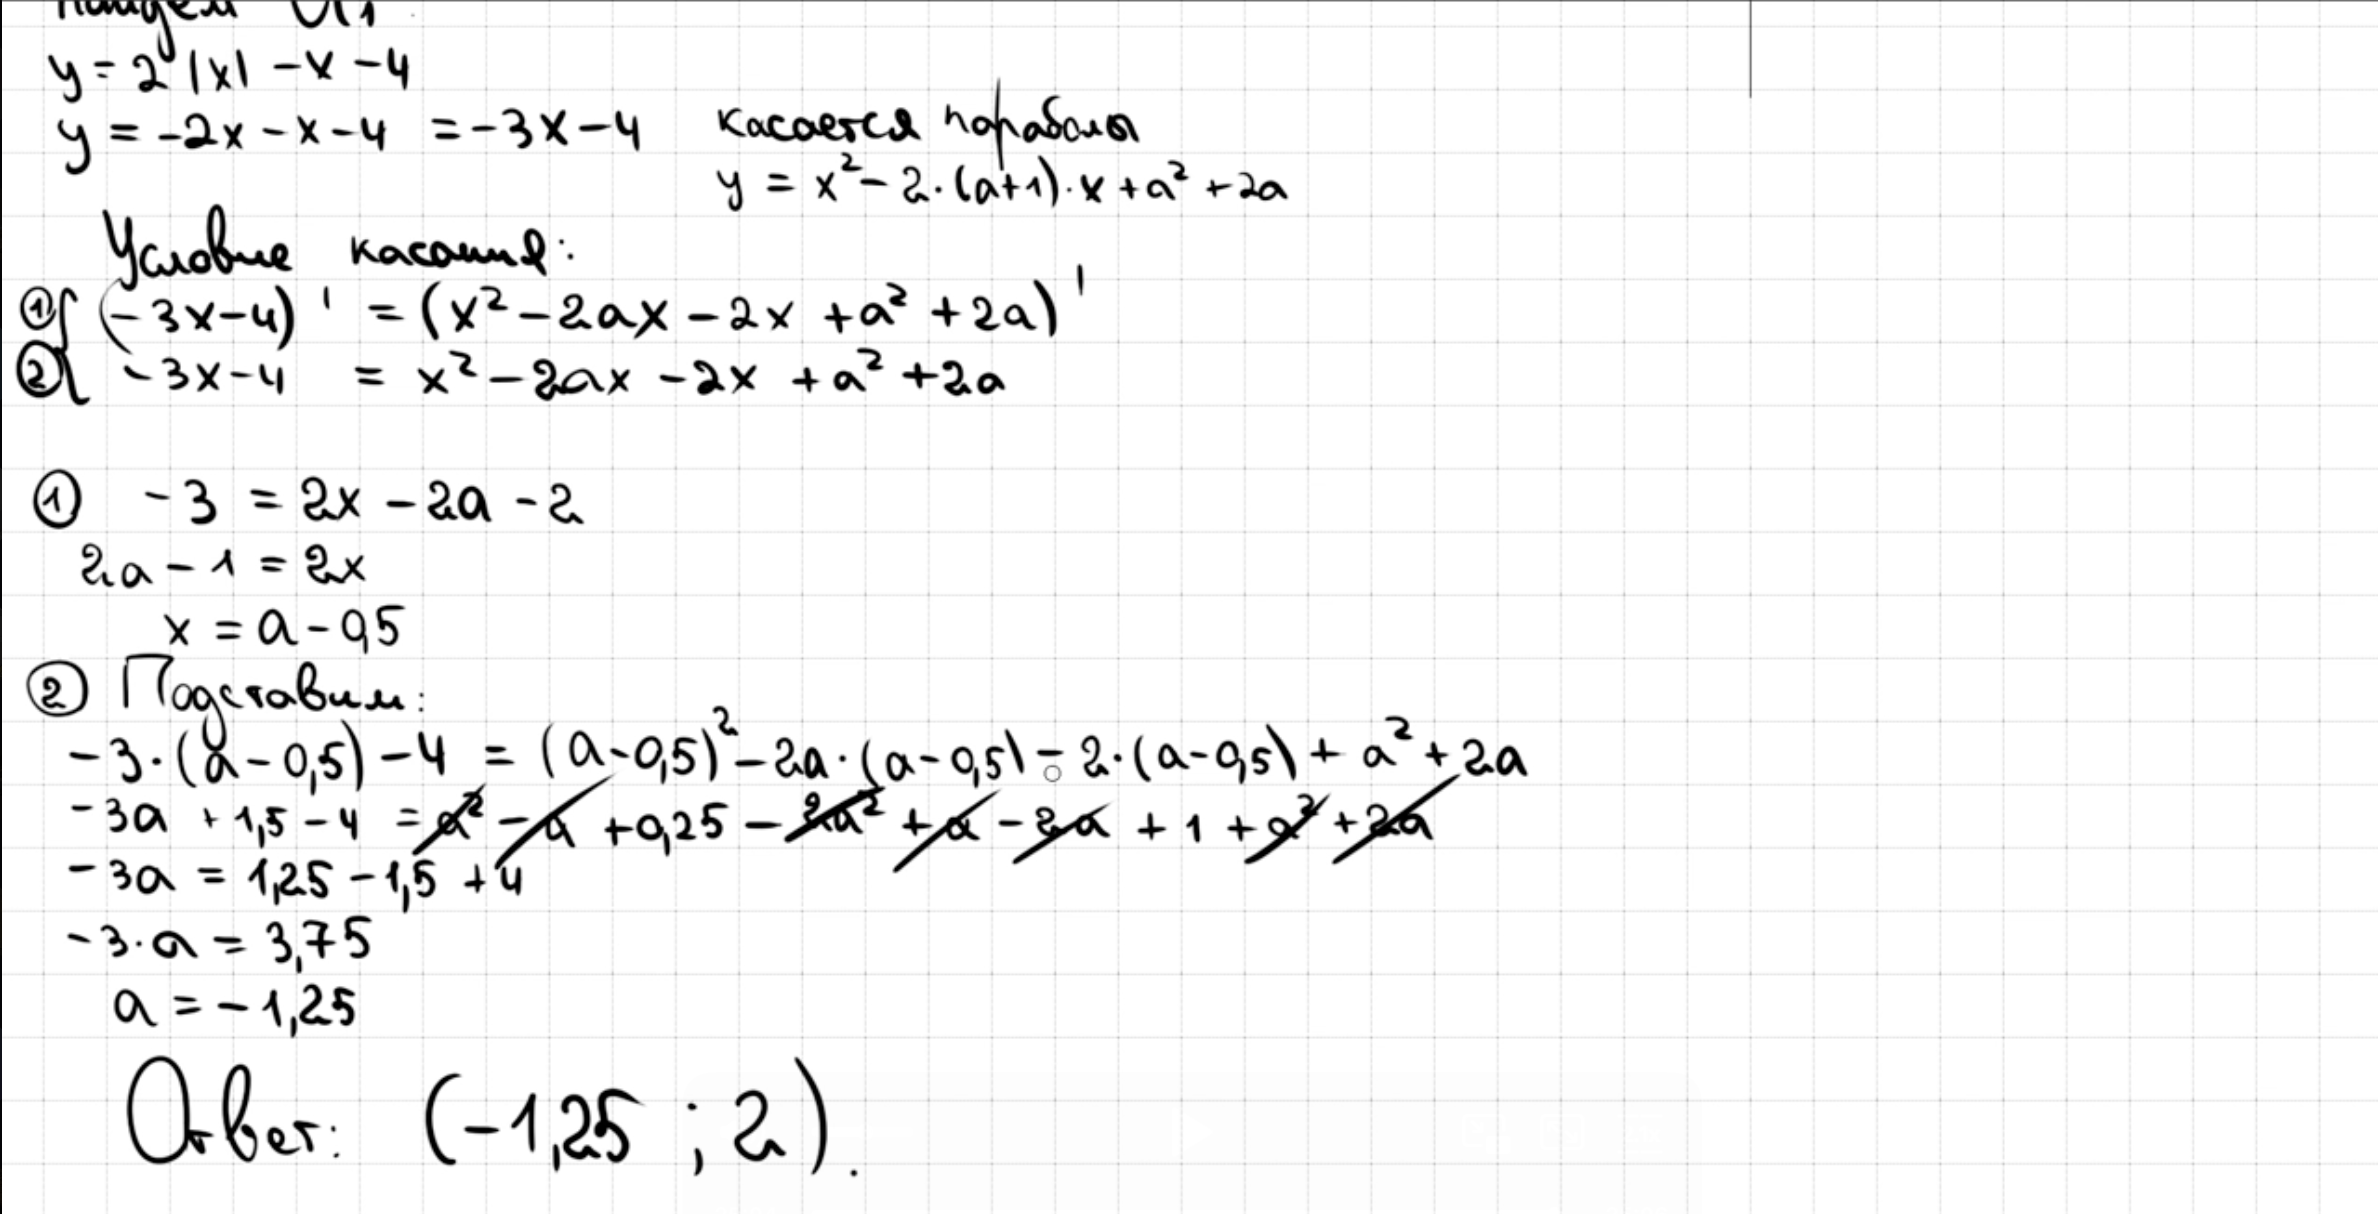 Найдем a₁:
y = 2|x| - x - 4
y = -2x - x - 4 = -3x - 4 касается параболы
y = x² - 2·(a+1)·x + a² + 2a
Условие касания:
① { (-3x-4)' = (x² - 2ax - 2x + a² + 2a)'
② { -3x-4 = x² - 2ax - 2x + a² + 2a
① -3 = 2x - 2a - 2
2a - 1 = 2x
x = a - 0,5
② Подставим:
-3·(a-0,5) - 4 = (a-0,5)² - 2a·(a-0,5) - 2·(a-0,5) + a² + 2a
-3a + 1,5 - 4 = a² - a + 0,25 - 2a² + a - 2a + 1 + a² + 2a
-3a = 1,25 - 1,5 + 4
-3·a = 3,75
a = -1,25
Ответ: (-1,25 ; 2).